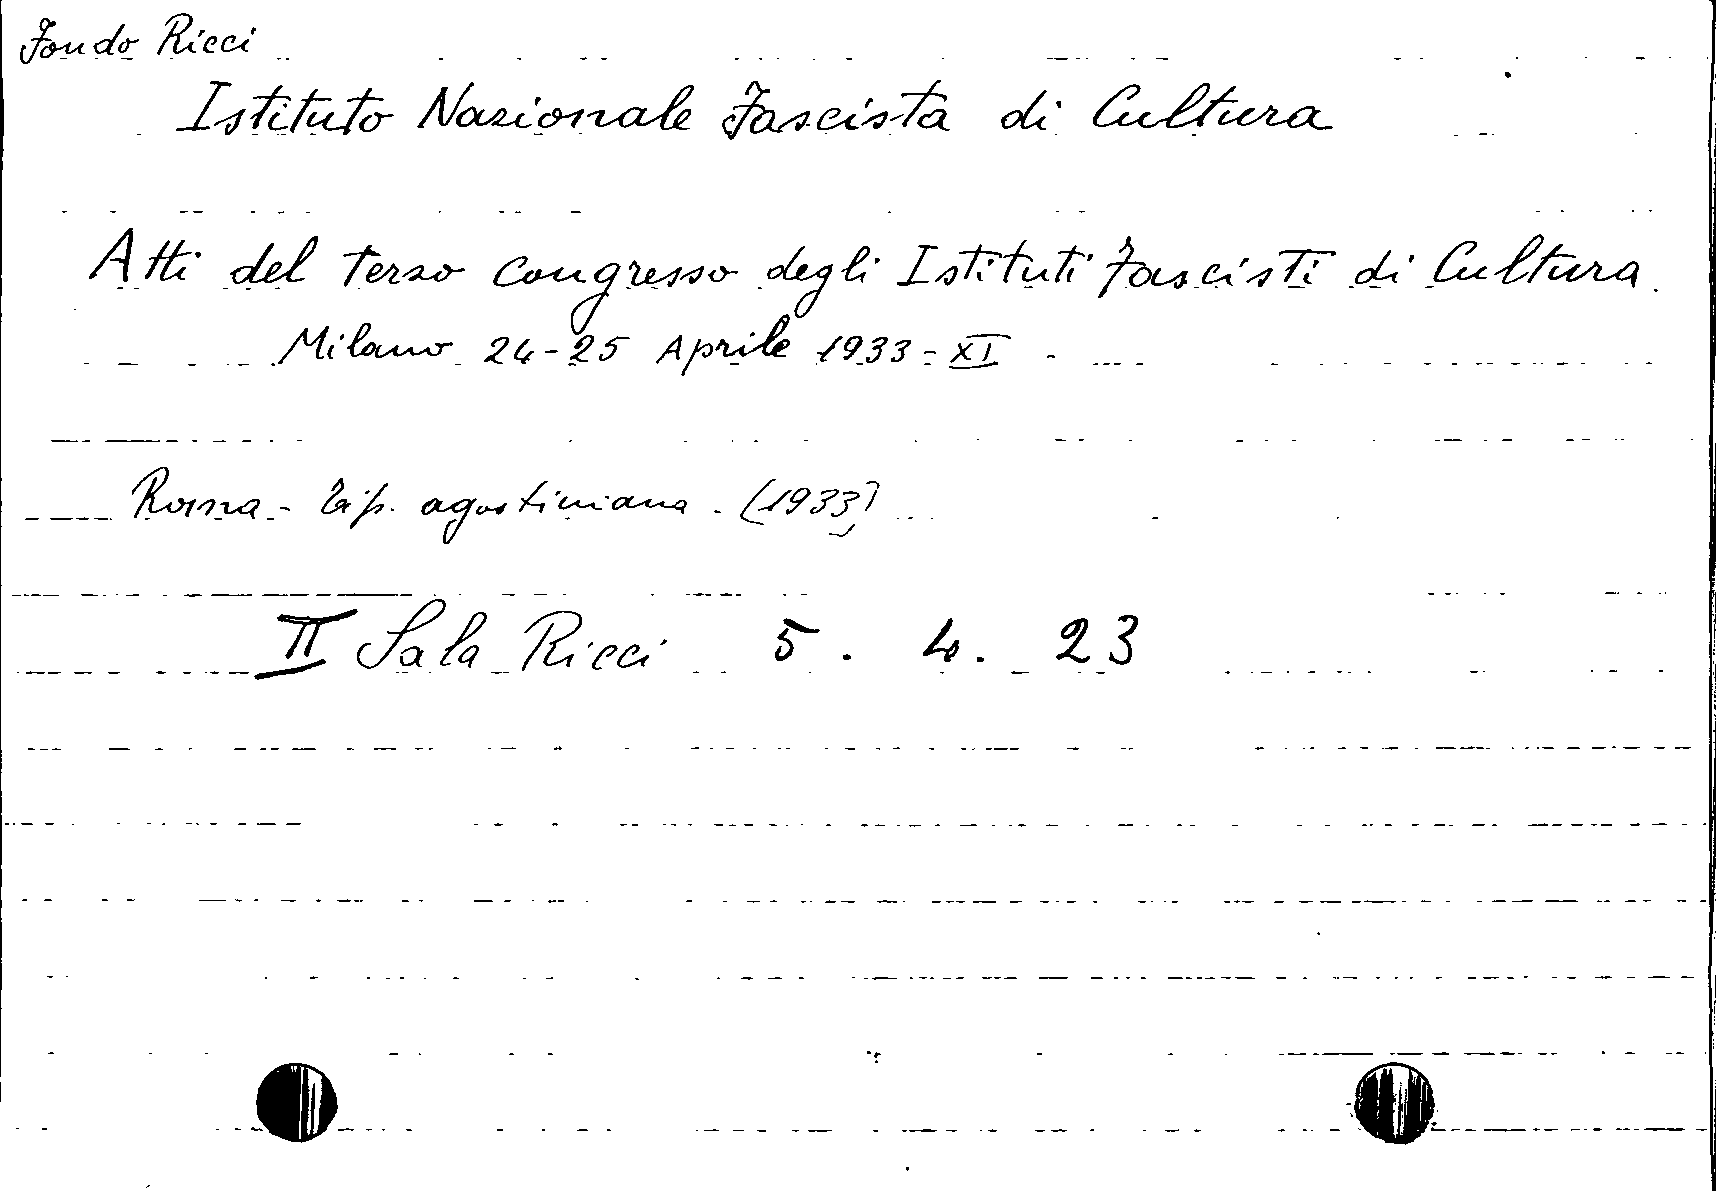 Fondo Ricci
Istituto Nazionale Fascista di Cultura
Atti del Terzo Congresso degli Istituti Fascisti di Cultura
Milano 24-25 Aprile 1933-XI
Roma - Tip. agostiniana. (1933)
II Sala Ricci 5. 4. 23